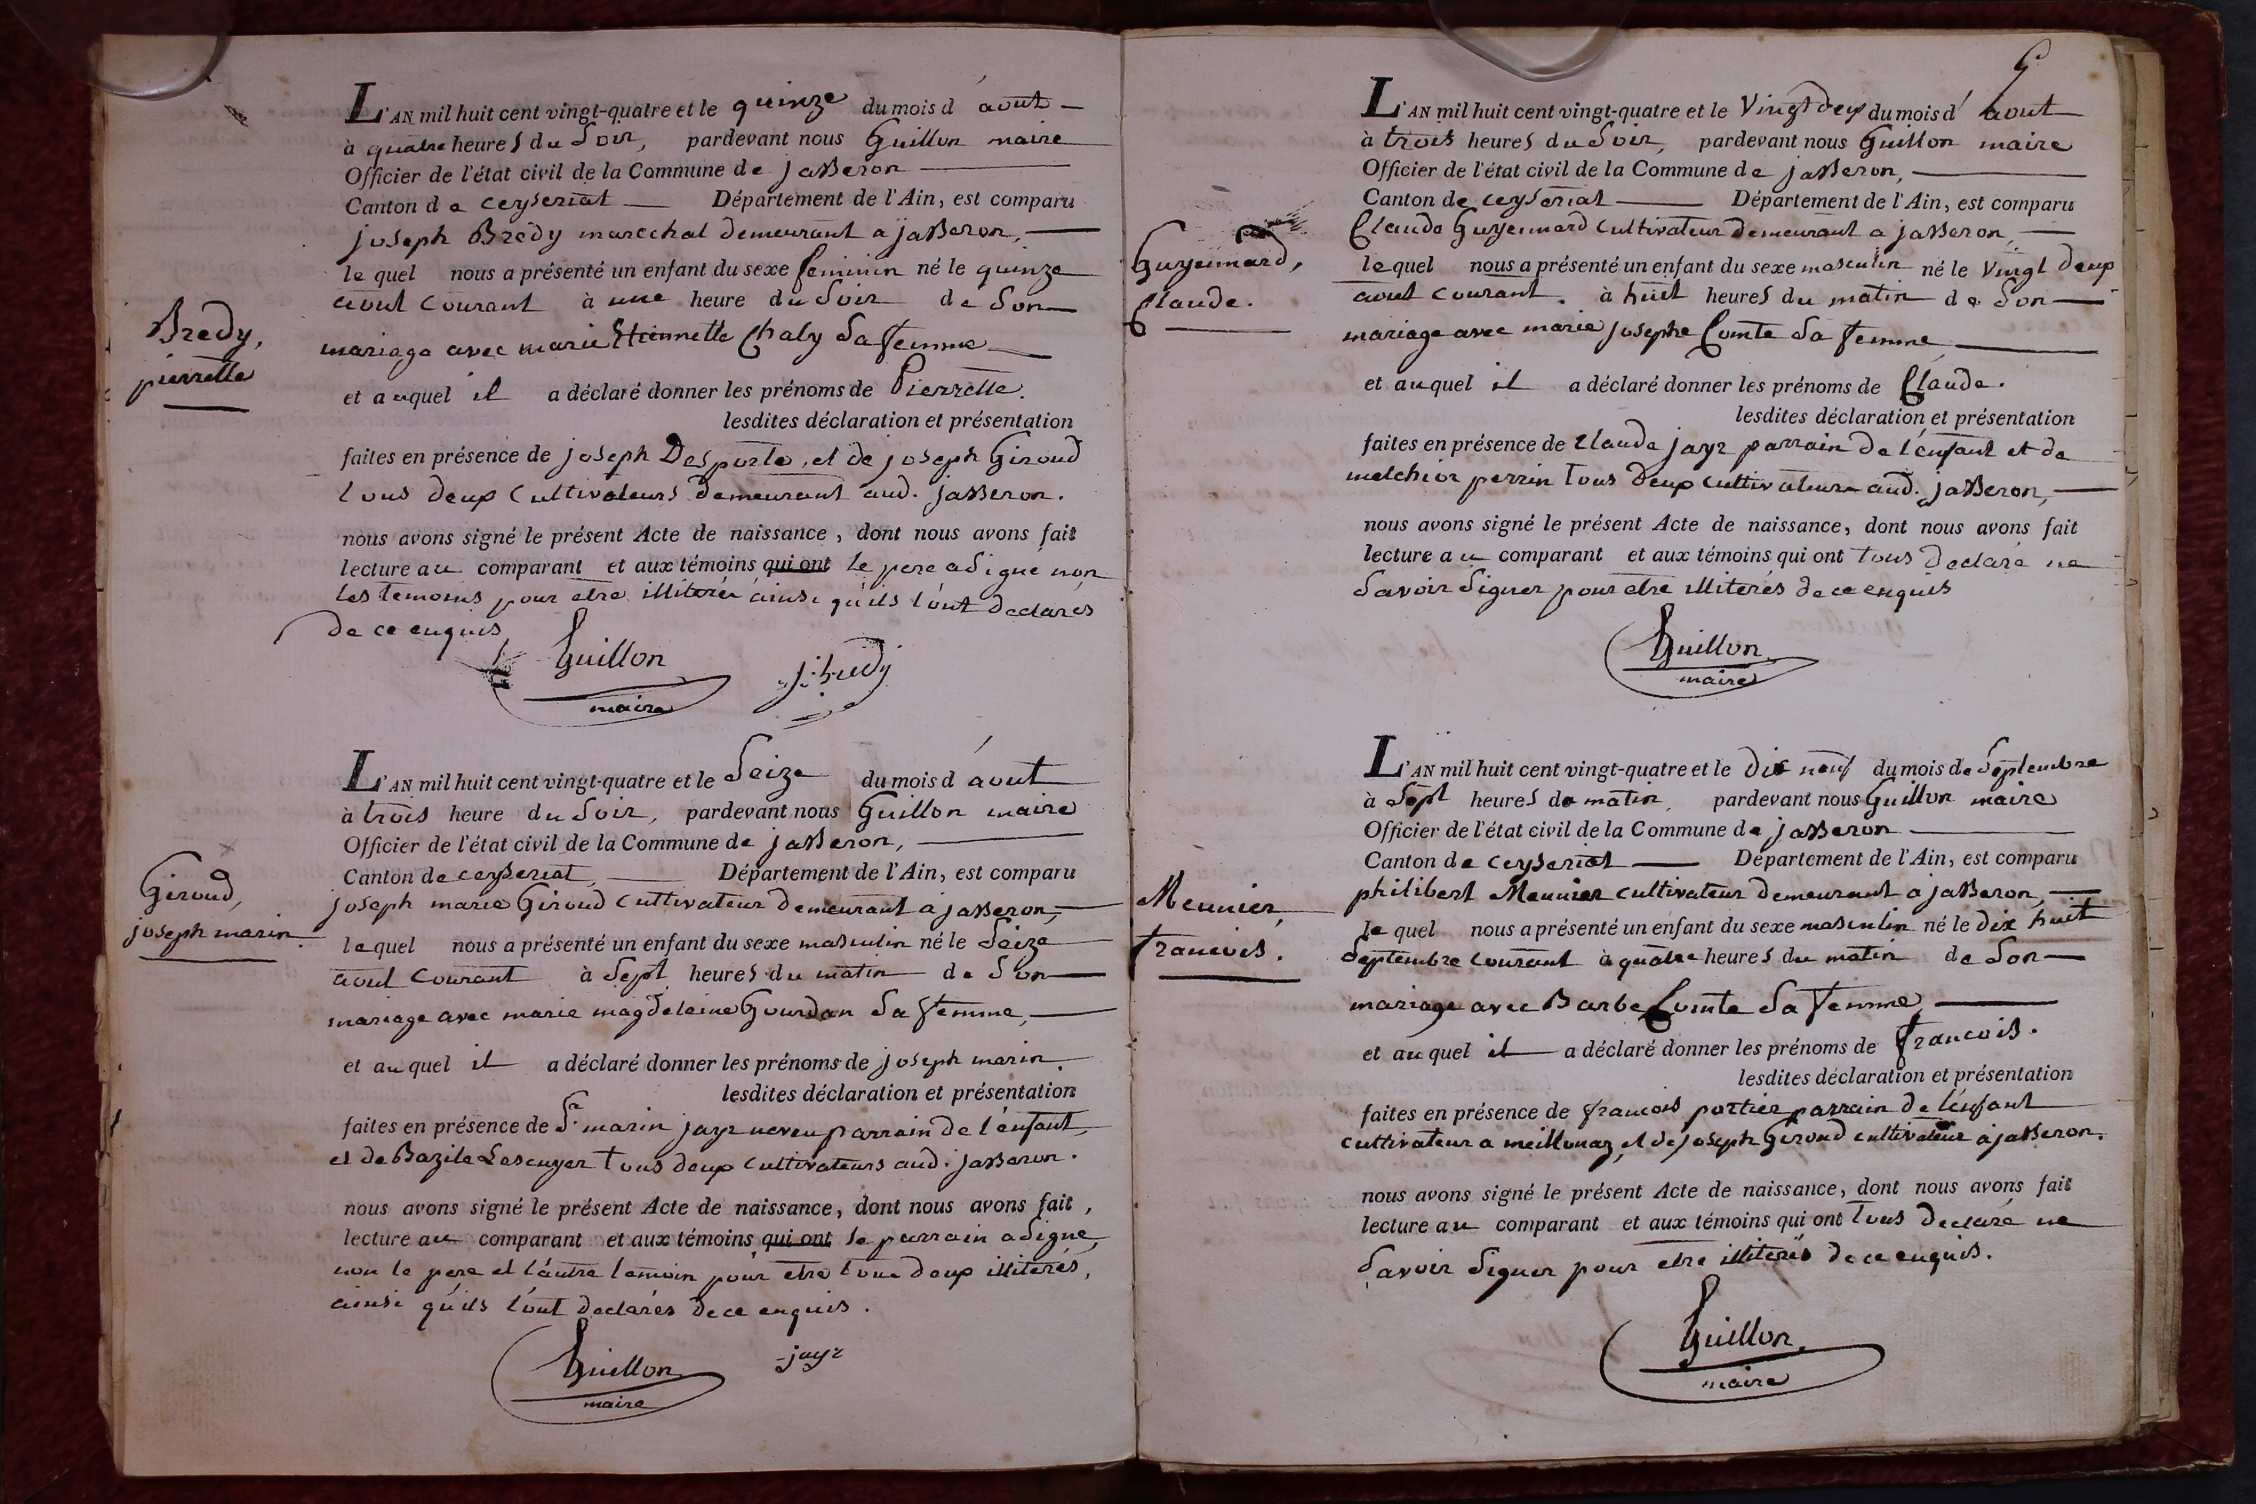 L'AN mil huit cent vingt-quatre et le quinze du mois d'aout
à quatre heures du Soir, pardevant nous Guillon maire
Officier de l'état civil de la Commune de jasseron
Canton de ceyseriat Département de l'Ain, est comparu
joseph Brédy marechal demeurant a jasseron,
le quel nous a présenté un enfant du sexe feminin né le quinze
aout courant à une heure du Soir de Son
mariage avec marie Etiennette Chaly Sa femme
Bredy,
pierrette
et auquel il a déclaré donner les prénoms de Pierrette.
lesdites déclaration et présentation
faites en présence de joseph Desporte, et de joseph Giroud
tous deux Cultivateurs demeurant aud. jasseron.
nous avons signé le présent Acte de naissance, dont nous avons fait
lecture au comparant et aux témoins qui ont le pere a Signé non
les temoins pour etre illiterés ainsi qu'ils l'ont declarés
de ce enquis
Guillon
maire
j. bredy
L'AN mil huit cent vingt-quatre et le Seize du mois d'aout
à trois heure du Soir, pardevant nous Guillon maire
Officier de l'état civil de la Commune de jasseron,
Canton de ceyseriat, Département de l'Ain, est comparu
Giroud,
joseph marin.
joseph marie Giroud cultivateur demeurant a jasseron,
le quel nous a présenté un enfant du sexe masculin né le Seize
aout courant à Sept heures du matin de Son
mariage avec marie magdeleine Gourdan Sa femme,
et auquel il a déclaré donner les prénoms de joseph marin.
lesdites déclaration et présentation
faites en présence de Sr. marin jayr neveu parrain de l'enfant,
et de Bazile Lescuyer tous deux cultivateurs aud. jasseron.
nous avons signé le présent Acte de naissance, dont nous avons fait,
lecture au comparant et aux témoins qui ont le parrain a Signé,
non le pere et l'autre temoin pour etre tous deux illiterés,
ainsi qu'ils l'ont declarés de ce enquis.
Guillon
maire
jayr
L'AN mil huit cent vingt-quatre et le Vingt deux du mois d'aout
à trois heures du Soir, pardevant nous Guillon maire
Officier de l'état civil de la Commune de jasseron,
Canton de ceyseriat Département de l'Ain, est comparu
Guyennard,
Claude.
Claude Guyennard Cultivateur demeurant a jasseron,
le quel nous a présenté un enfant du sexe masculin né le Vingt deux
aout courant. à huit heures du matin de Son
mariage avec marie josephe Comte Sa femme
et auquel il a déclaré donner les prénoms de Claude.
lesdites déclaration et présentation
faites en présence de Claude jayr parrain de l'enfant et de
melchior perrin tous deux cultivateurs aud. jasseron,
nous avons signé le présent Acte de naissance, dont nous avons fait
lecture au comparant et aux témoins qui ont tous declaré ne
Savoir Signer pour etre illiterés de ce enquis
Guillon
maire
L'AN mil huit cent vingt-quatre et le dix neuf du mois de Septembre
à Sept heures du matin, pardevant nous Guillon maire
Officier de l'état civil de la Commune de jasseron
Canton de ceyseriat Département de l'Ain, est comparu
Meunier,
francois.
philibert Meunier cultivateur demeurant a jasseron,
le quel nous a présenté un enfant du sexe masculin né le dix huit
Septembre courant à quatre heures du matin de Son
mariage avec Barbe Comte Sa femme,
et auquel il a déclaré donner les prénoms de francois.
lesdites déclaration et présentation
faites en présence de francois portier parrain de l'enfant
cultivateur a meillonaz, et de joseph Giroud cultivateur a jasseron.
nous avons signé le présent Acte de naissance, dont nous avons fait
lecture au comparant et aux témoins qui ont tous declaré ne
Savoir Signer pour etre illiterés de ce enquis.
Guillon
maire